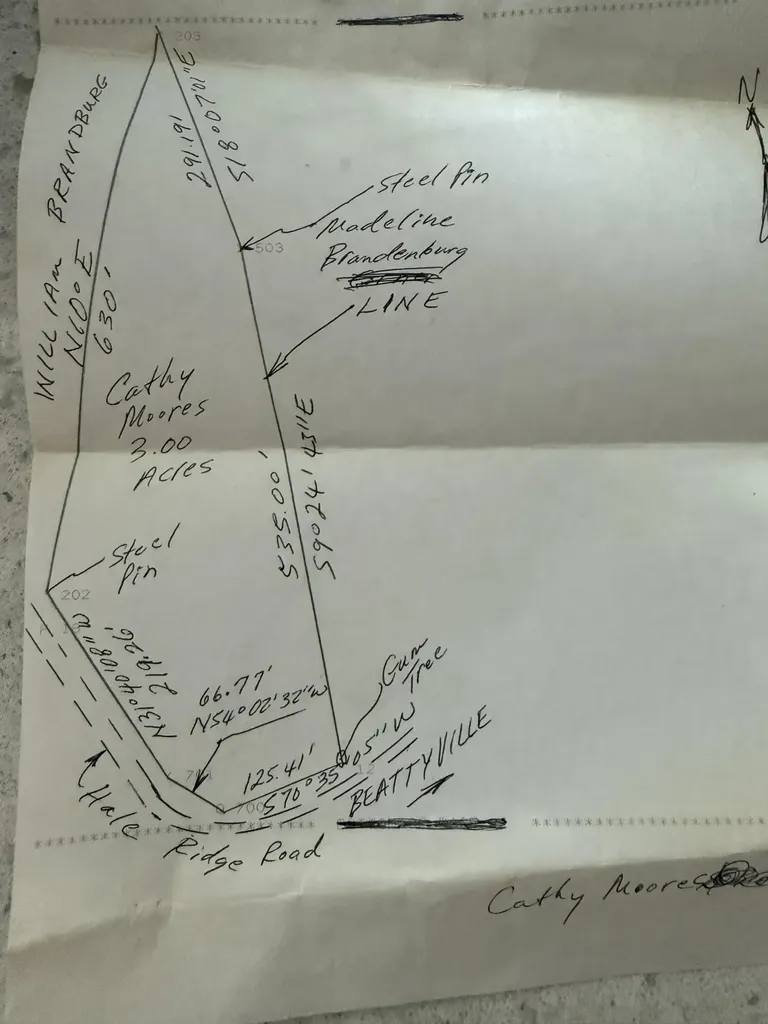 203
N
WILLIAM BRANDBURG
N10°E
630'
291.19'
S18°07'01"E
Steel Pin
503
Madeline
Brandenburg
LINE
Cathy
Moores
3.00
Acres
535.00'
S9°24'43"E
Steel
Pin
202
N31°40'08"W
219.26'
66.77'
N54°02'32"W
Gum
Tree
125.41'
S70°35'05"W
12
700
BEATTYVILLE
Hale
Ridge Road
Cathy Moores